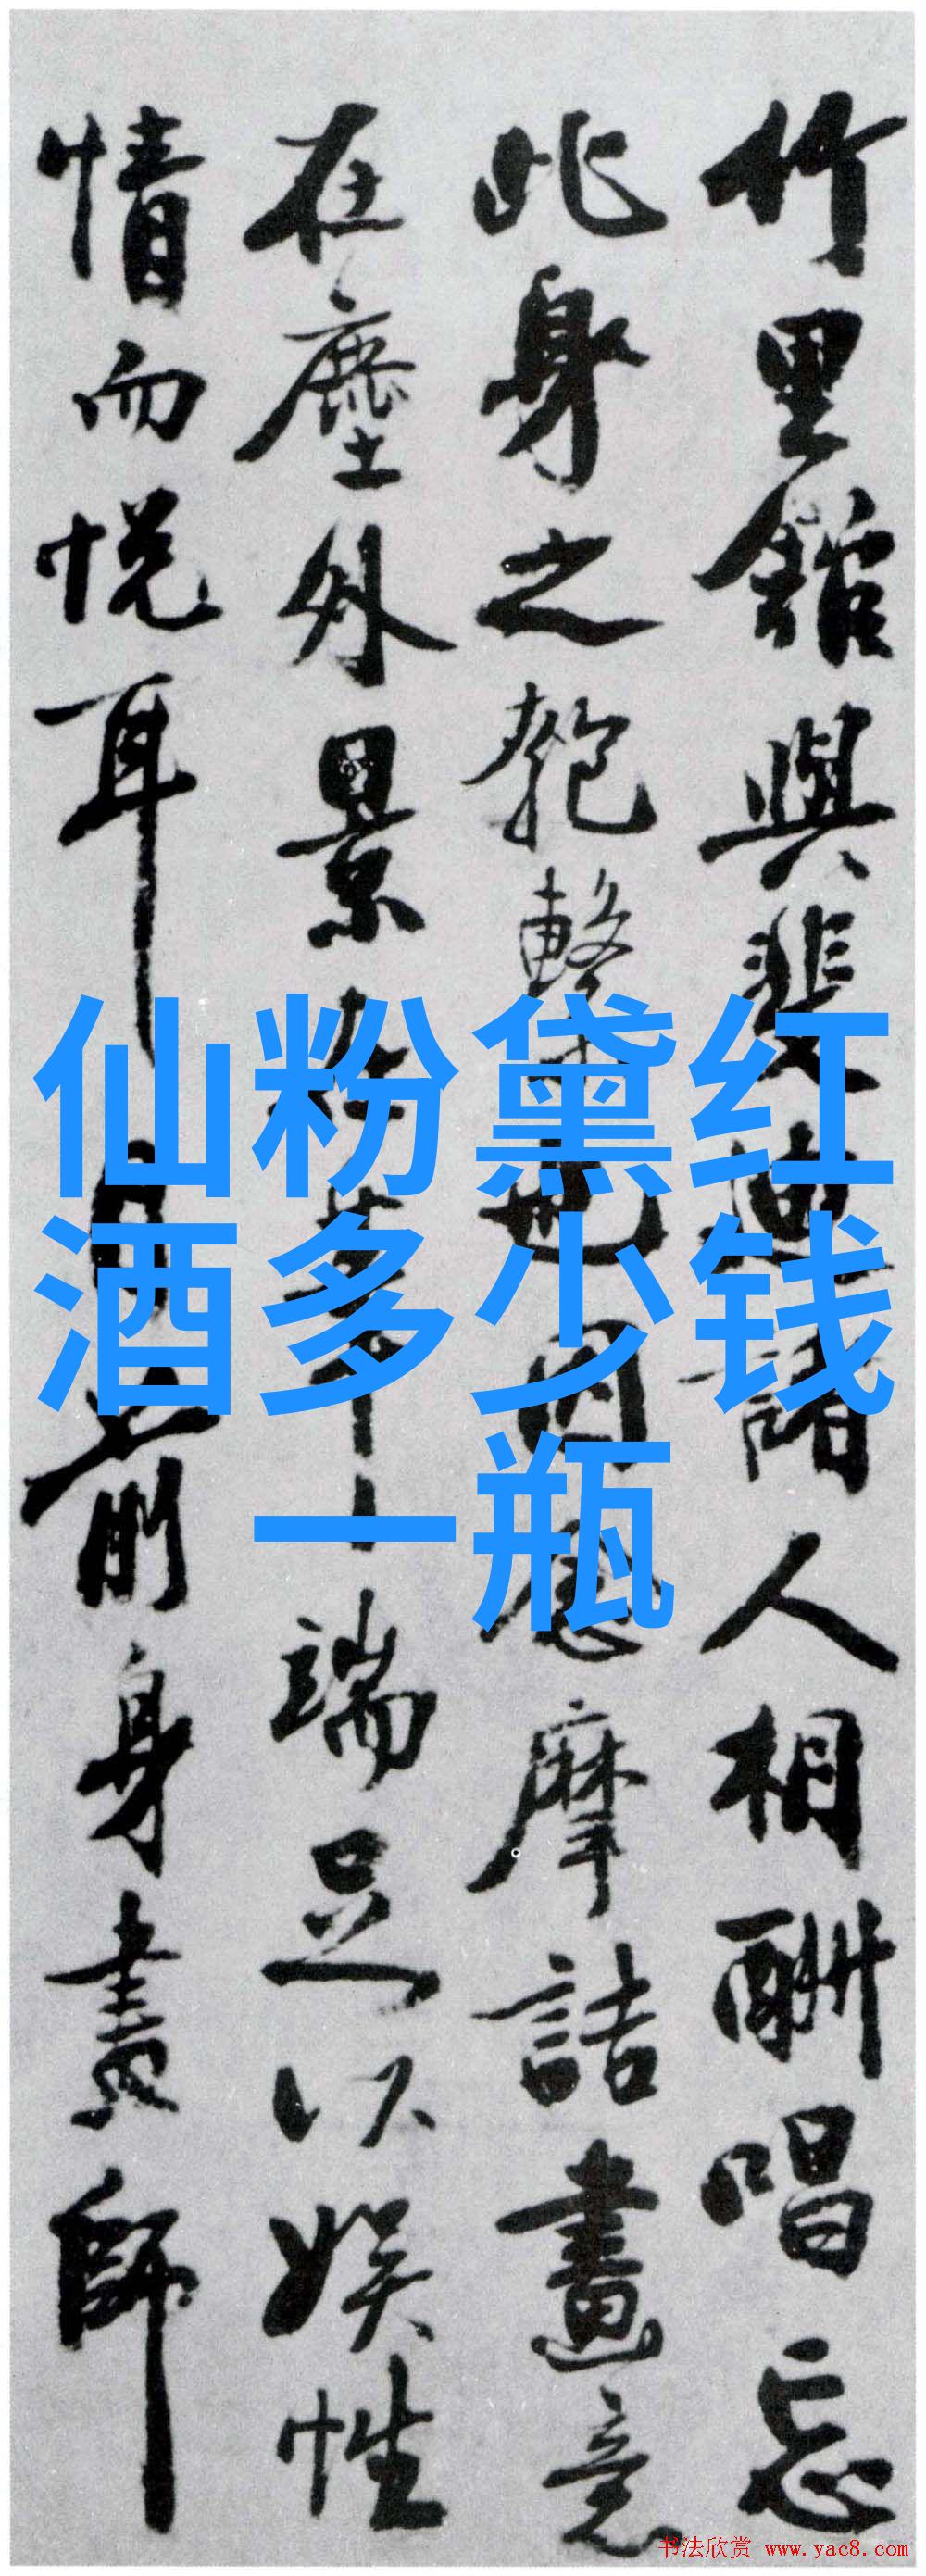 竹里館與裴迪諸人相酬唱忘
此身之匏繫也因思摩詰畫意
在塵外景
端足以娛性
情而悦耳
前身畫師
仙粉黛红
酒多少钱
一瓶
书法欣赏 www.yac8.com